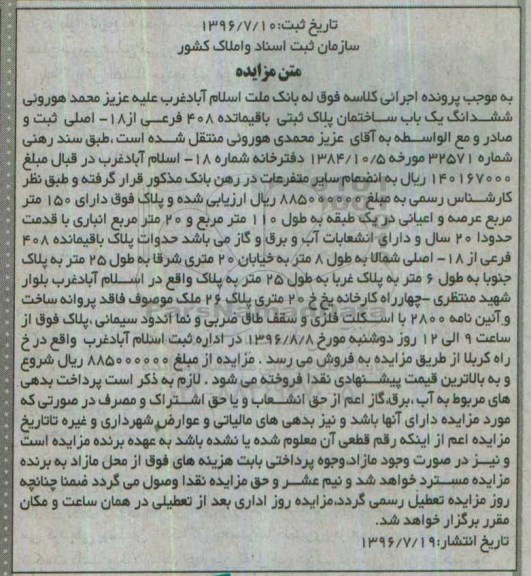 تاریخ ثبت:۱۳۹۶/۷/۱۰
سازمان ثبت اسناد واملاک کشور
متن مزایده
به موجب پرونده اجرائی کلاسه فوق له بانک ملت اسلام آبادغرب علیه عزیز محمد هورونی
ششدانگ یک باب ساختمان پلاک ثبتی باقیمانده ۴۰۸ فرعی از۱۸- اصلی ثبت و
صادر و مع الواسطه به آقای عزیز محمدی هورونی منتقل شده است ،طبق سند رهنی
شماره ۳۲۵۷۱ مورخه ۱۳۸۴/۱۰/۵ دفترخانه شماره ۱۸- اسلام آبادغرب در قبال مبلغ
۱۴۰۱۶۷۰۰۰ ریال به انضمام سایر متفرعات در رهن بانک مذکور قرار گرفته و طبق نظر
کارشناس رسمی به مبلغ ۸۸۵۰۰۰۰۰۰ ریال ارزیابی شده و پلاک فوق دارای ۱۵۰ متر
مربع عرصه و اعیانی در یک طبقه به طول ۱۱۰ متر مربع و ۲۰ متر مربع انباری با قدمت
حدودا ۲۰ سال و دارای انشعابات آب و برق و گاز می باشد حدوات پلاک باقیمانده ۴۰۸
فرعی از ۱۸- اصلی شمالا به طول ۸ متر به خیابان ۲۰ متری شرقا به طول ۲۵ متر به پلاک
جنوبا به طول ۶ متر به پلاک غربا به طول ۲۵ متر به پلاک واقع در اسلام آبادغرب بلوار
شهید منتظری -چهارراه کارخانه یخ خ ۲۰ متری پلاک ۲۶ ملک موصوف فاقد پروانه ساخت
و آئین نامه ۲۸۰۰ با اسکلت فلزی و سقف طاق ضربی و نما آندود سیمانی ،پلاک فوق از
ساعت ۹ الی ۱۲ روز دوشنبه مورخ ۱۳۹۶/۸/۸ در اداره ثبت اسلام آبادغرب واقع در خ
راه کربلا از طریق مزایده به فروش می رسد . مزایده از مبلغ ۸۸۵۰۰۰۰۰۰ ریال شروع
و به بالاترین قیمت پیشنهادی نقدا فروخته می شود . لازم به ذکر است پرداخت بدهی
های مربوط به آب ،برق،گاز اعم از حق انشعاب و یا حق اشتراک و مصرف در صورتی که
مورد مزایده دارای آنها باشد و نیز بدهی های مالیاتی و عوارض شهرداری و غیره تاتاریخ
مزایده اعم از اینکه رقم قطعی آن معلوم شده یا نشده باشد به عهده برنده مزایده است
و نیز در صورت وجود مازاد،وجوه پرداختی بابت هزینه های فوق از محل مازاد به برنده
مزایده مسترد خواهد شد و نیم عشر و حق مزایده نقدا وصول می گردد ضمنا چنانچه
روز مزایده تعطیل رسمی گردد،مزایده روز اداری بعد از تعطیلی در همان ساعت و مکان
مقرر برگزار خواهد شد.
تاریخ انتشار:۱۳۹۶/۷/۱۹